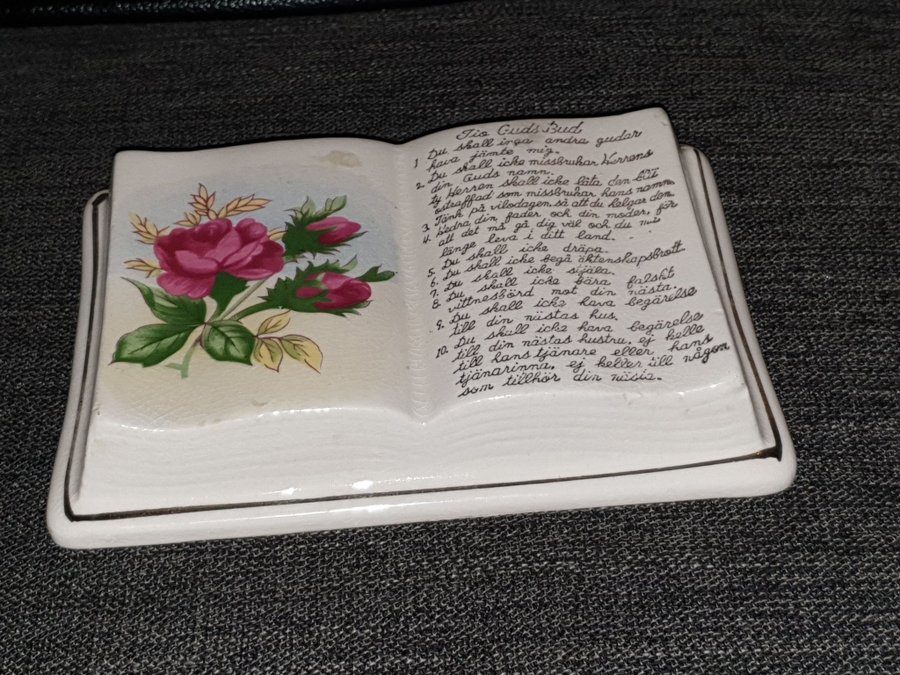 Tio Guds Bud
1 Du skall inga andra gudar
hava jämte mig.
2. Du skall icke missbrukar Herrens
din Guds namn.
ty Herren skall icke låta den bli
ostraffad som missbrukar hans namn.
3. Tänk på vilodagen, så att du helgar den
4. hedra din fader och din moder, för
att det må gå dig väl och du må
länge leva i ditt land.
5. Du skall icke dräpa.
6. Du skall icke begå äktenskapsbrott.
7. Du skall icke stjäla.
8. Du skall icke bära falskt
vittnesbörd mot din nästa.
9. Du skall icke hava begärelse
till din nästas hus.
10. Du skall icke hava begärelse
till din nästas hustru, ej heller
till hans tjänare eller hans
tjänarinna, ej heller till någon
som tillhör din nästa.